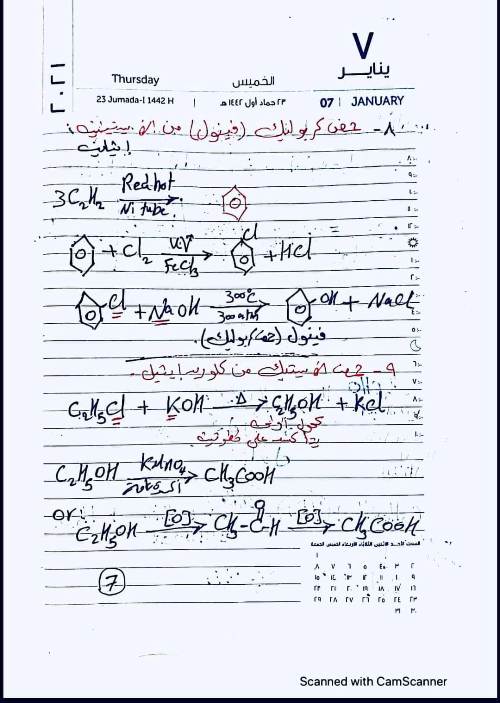 ٧
يناير
٢٠٢١
Thursday الخميس
23 Jumada-I 1442 H | ٢٣ جماد أول ١٤٤٢ هـ 07 | JANUARY
٨- حمض كربوليك (فينول) من الاستيلين:
3C₂H₂ Red hot Ni tube
+ Cl₂ U.V FeCl₃ Cl + HCl
Cl + NaOH 300°C 300 atm OH + NaCl
فينول (حمض كربوليك).
٩- حمض الاستيك من كلوريد ايثيل.
C₂H₅Cl + KOH Δ C₂H₅OH + KCl
كحول أولى
يتأكسد على خطوتين
C₂H₅OH KMnO₄ أكسدة CH₃COOH
or C₂H₅OH [O] CH₃-C-H O [O] CH₃COOH
7
Scanned with CamScanner